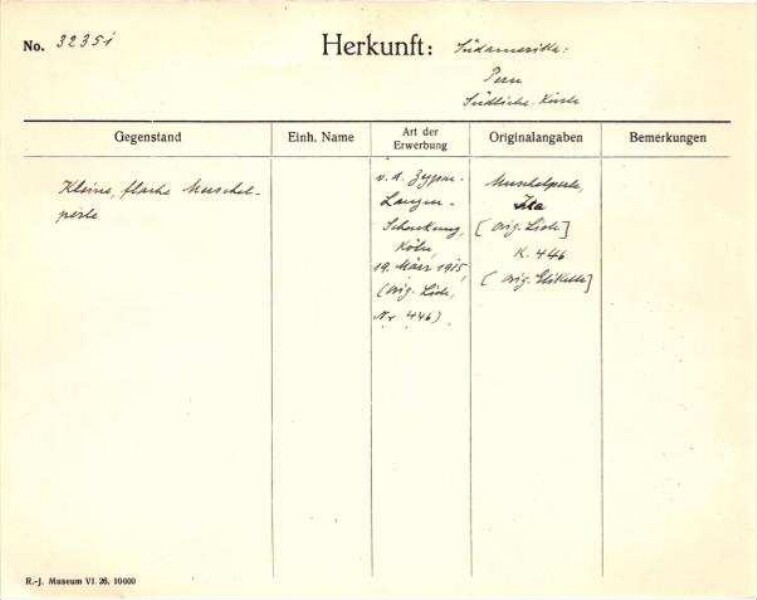 No. 32351
Herkunft: Südamerika:
Peru
Südliche Küste
Gegenstand
Einh. Name
Art der
Erwerbung
Originalangaben
Bemerkungen
Kleine, flache Muschel-
perle
v. d. Zypen-
Langen-
Schenkung,
Köln,
19. März 1915,
(orig. Liste,
Nr 446)
Muschelperle,
Ica
[orig. Liste]
K. 446
[orig. Etikette]
R.-J. Museum VI. 26. 10000